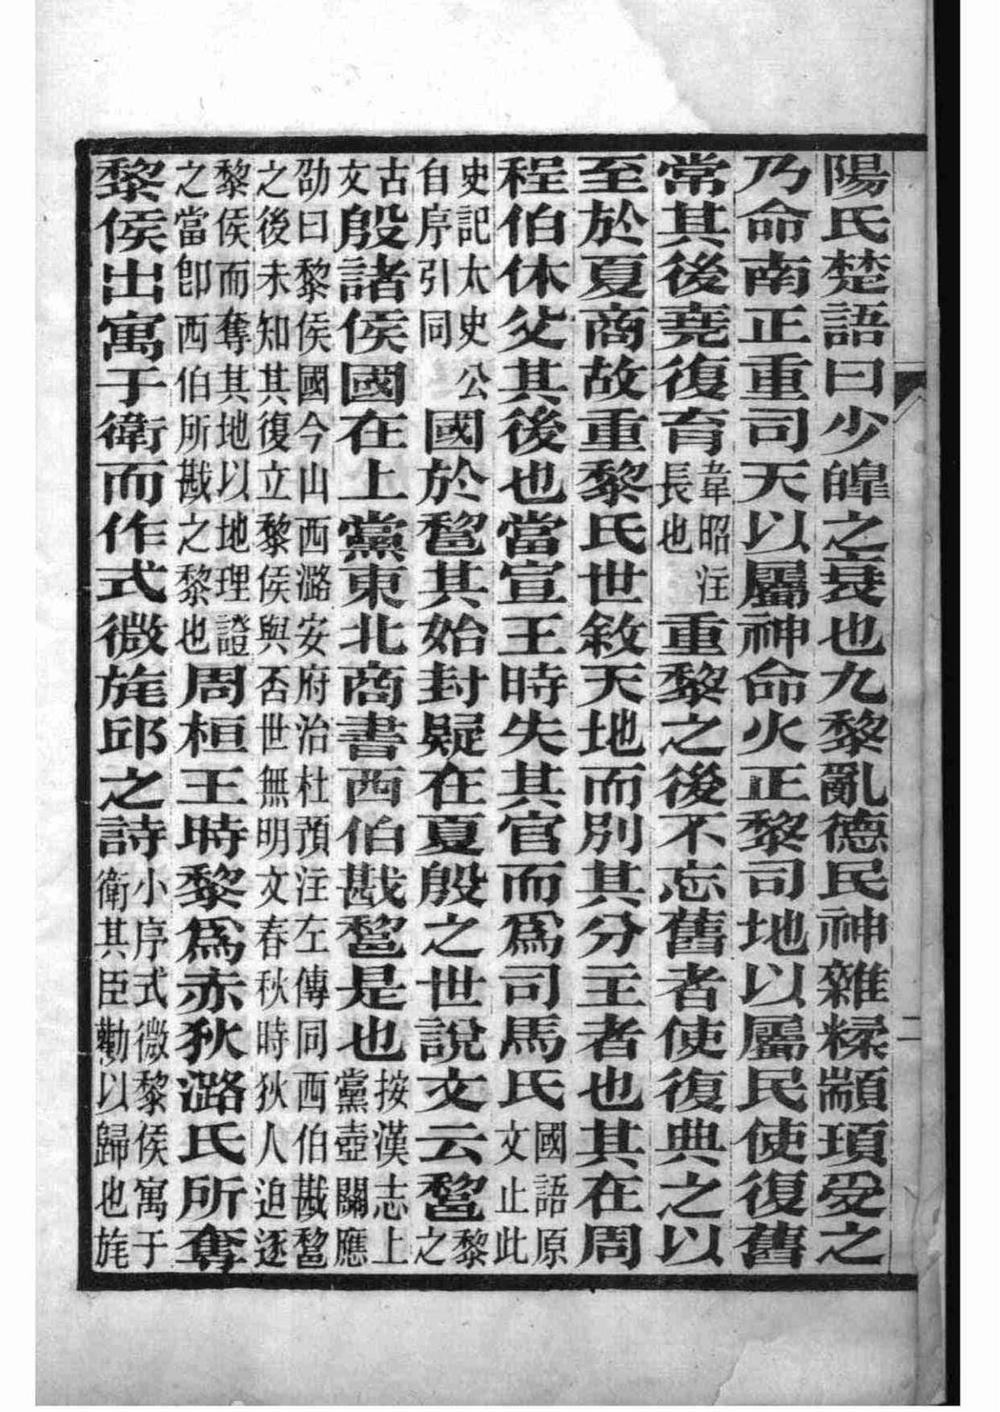 陽氏楚語曰少皡之衰也九黎亂德民神雜糅顓頊受之
乃命南正重司天以屬神命火正黎司地以屬民使復舊
常其後堯復育韋昭注長也重黎之後不忘舊者使復典之以
至於夏商故重黎氏世敘天地而別其分主者也其在周
程伯休父其後也當宣王時失其官而爲司馬氏國語原文止此
史記太史公自序引同國於𨛫其始封疑在夏殷之世說文云𨛫黎之
古文殷諸侯國在上黨東北商書西伯戡𨛫是也按漢志上黨壺關應
劭曰黎侯國今山西潞安府治杜預注左傳同西伯戡𨛫之後未知其復立黎侯與否世無明文春秋時狄人迫逐
黎侯而奪其地以地理證之當卽西伯所戡之黎也周桓王時黎爲赤狄潞氏所奪
黎侯出寓于衛而作式微旄邱之詩小序式微黎侯寓于衛其臣勸以歸也旄